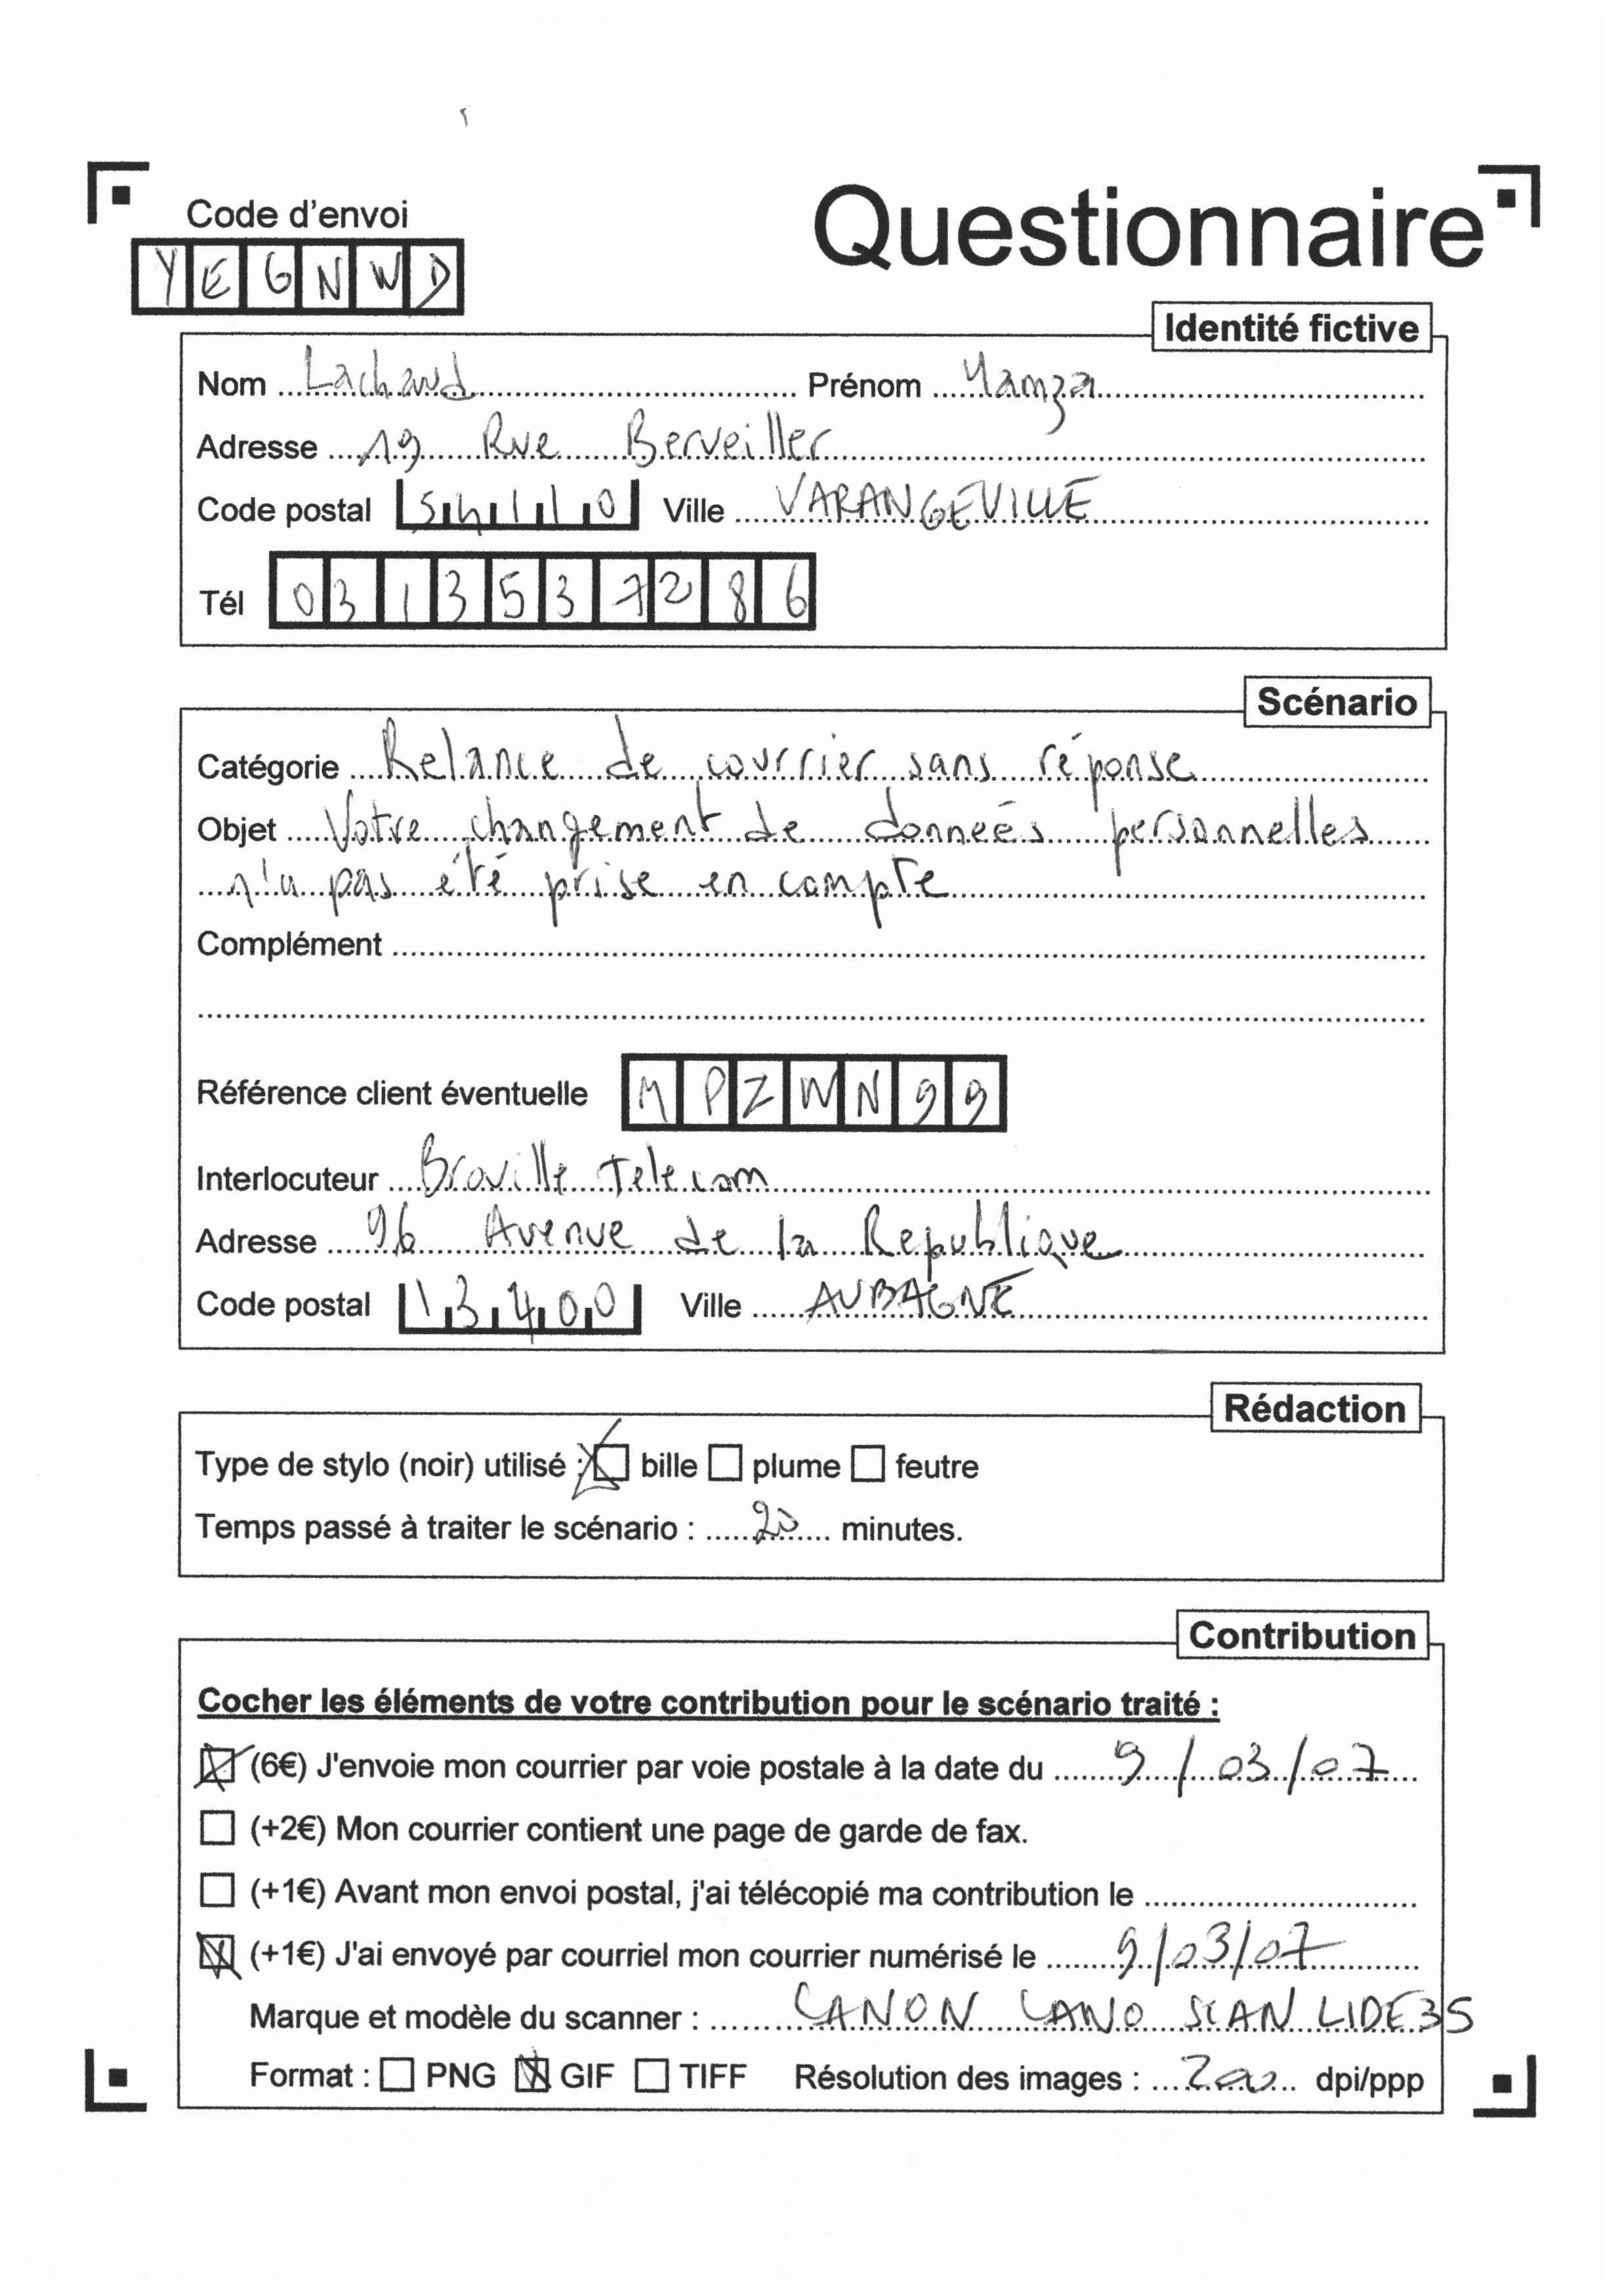 Questionnaire
Code d'envoi
YEGNWD
Identité fictive
Nom Lachaud Prénom Hamza
Adresse 19 Rue Berveiller
Code postal 54110 Ville VARANGEVILLE
Tél 0313537286
Scénario
Catégorie Relance de courrier sans réponse
Objet Votre changement de donneés personnelles
n'a pas été prise en compte
Complément
Référence client éventuelle MPZWN99
Interlocuteur Broville Telecom
Adresse 96 Avenue de la Republique
Code postal 13400 Ville AUBAGNE
Rédaction
Type de stylo (noir) utilisé : bille plume feutre
Temps passé à traiter le scénario : 20 minutes.
Contribution
Cocher les éléments de votre contribution pour le scénario traité :
(6€) J'envoie mon courrier par voie postale à la date du 9/03/07
(+2€) Mon courrier contient une page de garde de fax.
(+1€) Avant mon envoi postal, j'ai télécopié ma contribution le
(+1€) J'ai envoyé par courriel mon courrier numérisé le 9/03/07
Marque et modèle du scanner : CANON CANO SCAN LIDE35
Format : PNG GIF TIFF Résolution des images : 200 dpi/ppp